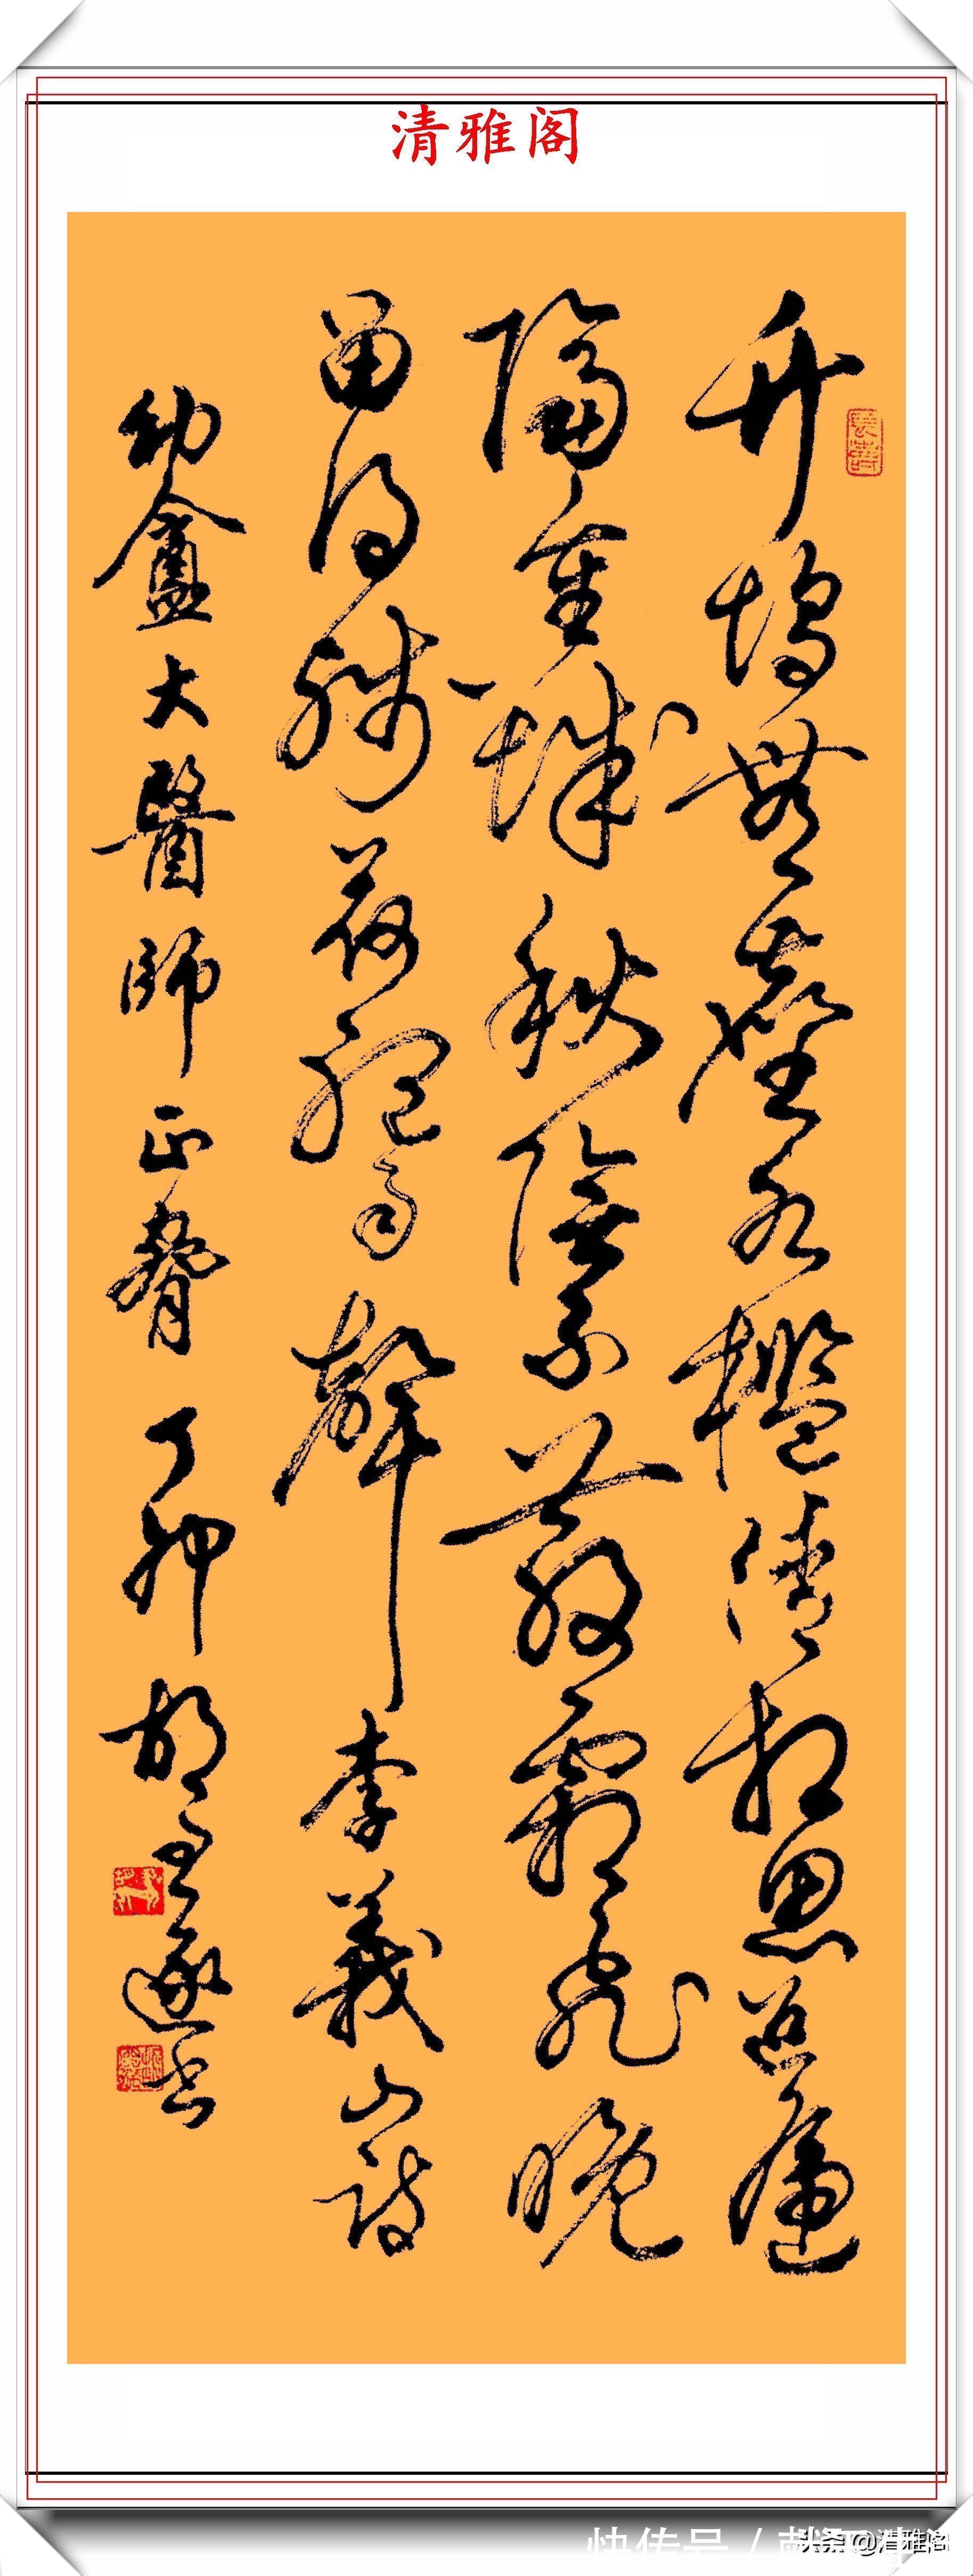 清雅阁
竹坞无尘水槛清相思迢递
隔重城秋阴不散霜飞晚
留得残荷听雨声李義山詩
幼盦大醫師正腕丁卯胡问遂书
头条@清雅阁